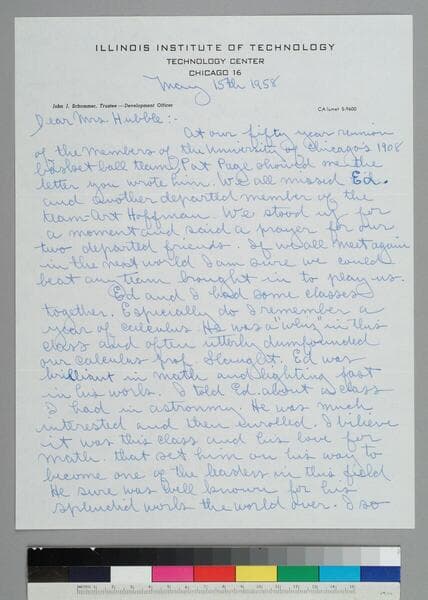 ILLINOIS INSTITUTE OF TECHNOLOGY
TECHNOLOGY CENTER
CHICAGO 16
May 15th 1958
John J. Schommer, Trustee — Development Officer
CAlumet 5-9600
Dear Mrs. Hubble:-
At our fifty year reunion
of the members of the University of Chicago's 1908
basket ball team, Pat Page showed me the
letter you wrote him. We all missed Ed.
and another departed member of the
team-Art Hoffman. We stood up for
a moment and said a prayer for our
two departed friends. If we all meet again
in the next world I am sure we could
beat any team brought in to play us.
Ed and I had some classes
together. Especially do I remember a
year of calculus. He was a "why" in this
class and often utterly dumfounded
our calculus prof. Slaught. Ed was
brilliant in math and lighting fast
in his work. I told Ed. about a class
I had in astronmy. He was much
interested and then enrolled. I believe
it was this class and his love for
math. that set him on his way to
become one of the leaders in this field
He sure was well known for his
splendid work the world over. I so